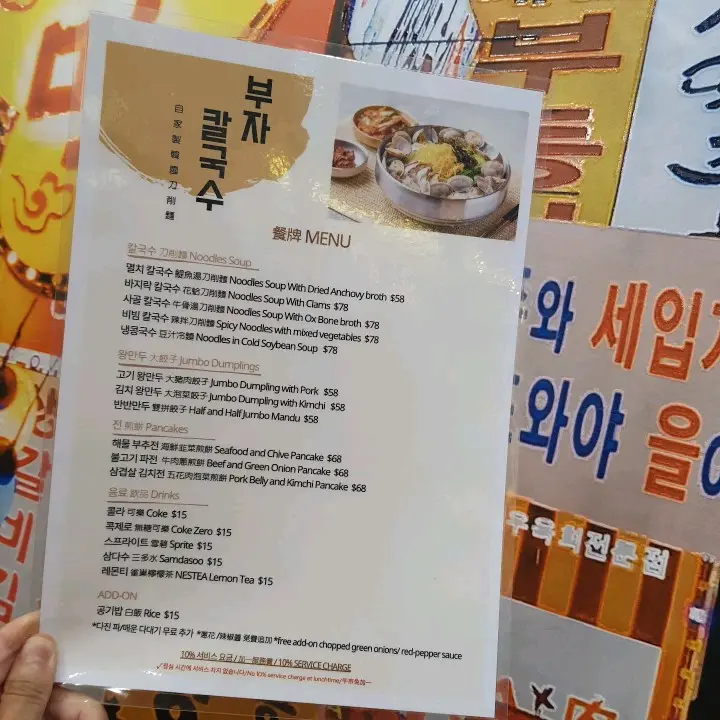 부자
칼국수
自家製韓國刀削麵
餐牌 MENU
칼국수 刀削麵 Noodles Soup
멸치 칼국수 鯷魚湯刀削麵 Noodles Soup With Dried Anchovy broth $58
바지락 칼국수 花蛤刀削麵 Noodles Soup With Clams $78
사골 칼국수 牛骨湯刀削麵 Noodles Soup With Ox Bone broth $78
비빔 칼국수 辣拌刀削麵 Spicy Noodles with mixed vegetables $78
냉콩국수 豆汁冷麵 Noodles in Cold Soybean Soup $78
왕만두 大餃子 Jumbo Dumplings
고기 왕만두 大豬肉餃子 Jumbo Dumpling with Pork $58
김치 왕만두 大泡菜餃子 Jumbo Dumpling with Kimchi $58
반반만두 雙拼餃子 Half and Half Jumbo Mandu $58
전 煎餅 Pancakes
해물 부추전 海鮮韭菜煎餅 Seafood and Chive Pancake $68
불고기 파전 牛肉蔥煎餅 Beef and Green Onion Pancake $68
삼겹살 김치전 五花肉泡菜煎餅 Pork Belly and Kimchi Pancake $68
음료 飲品 Drinks
콜라 可樂 Coke $15
콕제로 無糖可樂 Coke Zero $15
스프라이트 雪碧 Sprite $15
삼다수 三多水 Samdasoo $15
레몬티 雀巢檸檬茶 NESTEA Lemon Tea $15
ADD-ON
공기밥 白飯 Rice $15
*다진 파/매운 다대기 무료 추가 *蔥花/辣椒醬 免費追加 *free add-on chopped green onions/ red-pepper sauce
10% 서비스 요금 / 加一服務費 / 10% SERVICE CHARGE
✓점심 시간에 서비스 차지 없습니다/No 10% service charge at lunchtime/午市免加一
와 세입자
와야 을
우육회전문점